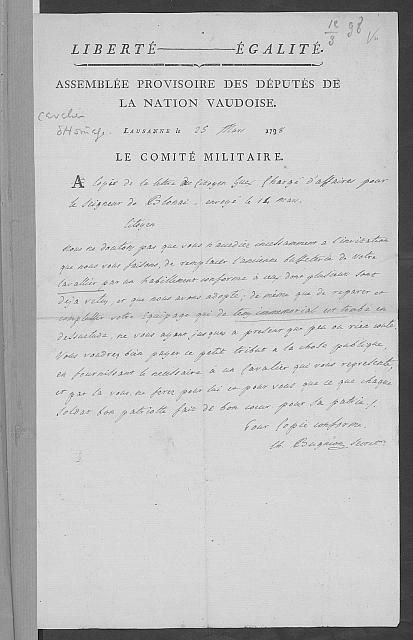 12/3 98
LIBERTÉ ÉGALITÉ.
ASSEMBLÉE PROVISOIRE DES DÉPUTÉS DE
LA NATION VAUDOISE.
LAUSANNE le 25 Mars 1798
LE COMITÉ MILITAIRE.
A Copie de la lettre du Citoyen Chargé d'affaires pour
le Seigneur de Blonai, envoyé le 12 mars.
Citoyen
Nous ne doutons pas que vous n'accediez incessamment a l'invitation
que nous vous faisons, de remplacer l'ancienne buffleterie de votre
cavallier par un habillement conforme à ceux dont plusieurs sont
déja vetus, et que nous avons adopté; de même que de reparer et
completter votre Equipage qui de tems immemorial est tombé en
desuetude, ne vous ayant jusques à present que peu ou rien couté.
Vous voudrez bien payer ce petit tribut a la chose publique,
en fournissant le necessaire à un Cavalier qui vous represente,
et par la vous ne ferez pour lui et pour vous que ce que chaque
soldat bon patriotte fait de bon coeur pour sa patrie!
Pour Copie conforme.
Ch. Bugnion Secret.